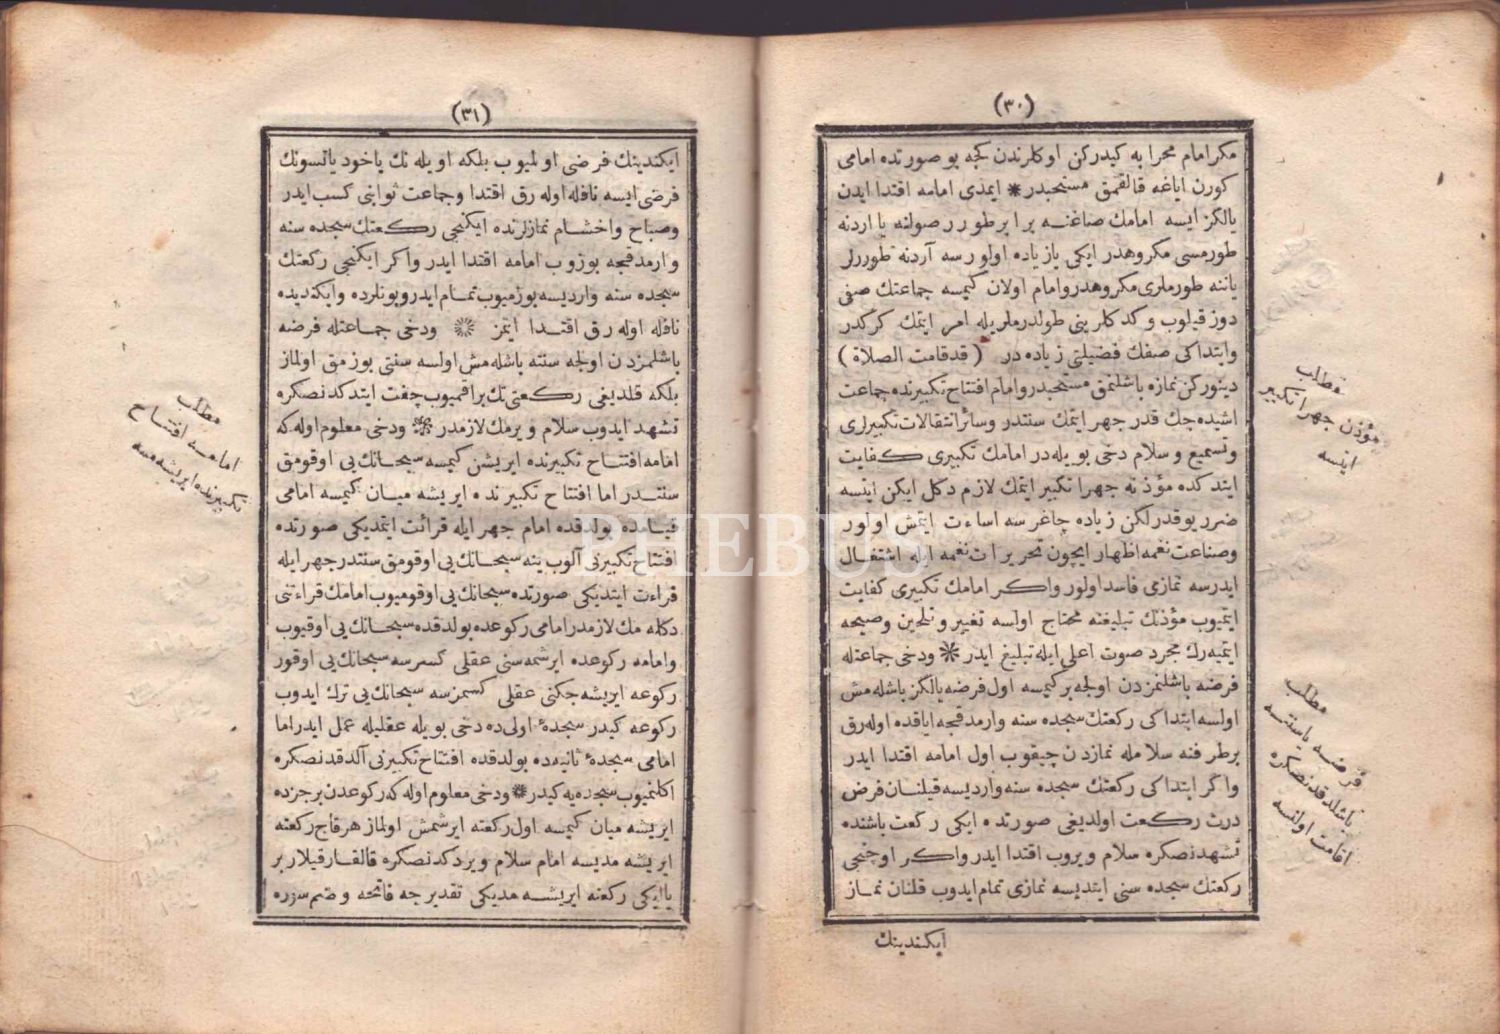 (٣٠)
مكر امام محرابه كيدركن اوكلرندن كچه بو صورتده امامى
كورن اياغه قالقمق مستحبدر ❋ ايمدى امامه اقتدا ايدن
يالكز ايسه امامك صاغنه برابر طورر صولنه يا اردنه
طورمسى مكروهدر ايكى يا زياده اولورسه آردنه طورلر
ياننه طورملرى مكروهدر وامام اولان كيمسه جماعتك صفى
دوز قيلوب وكدكلرينى طولدرملريله امر ايتمك كركدر
وابتداكى صفك فضيلتى زياده در ( قدقامت الصلاة )
دينوركن نمازه باشلنمق مستحبدر وامام افتتاح تكبيرنده جماعت
اشيده جك قدر جهر ايتمك سنتدر وسائر انتقالات تكبيرلرى
وتسميع و سلام دخى بويله در امامك تكبيرى كفايت
ايتدكده مؤذنه جهرا تكبير ايتمك لازم دكل ايكن ايتسه
ضرر يوقدر لكن زياده چاغرسه اساءت ايتمش اولور
وصناعت نغمه اظهار ايچون تحريرات نغمه ايله اشتغال
ايدرسه نمازى فاسد اولور واكر امامك تكبيرى كفايت
ايتميوب مؤذنك تبليغنه محتاج اولسه تغيير و تلحين وصيحه
ايتميه رك مجرد صوت اعلى ايله تبليغ ايدر ❋ ودخى جماعتله
فرضه باشلنمزدن اولجه بر كيمسه اول فرضه يالكز باشله مش
اولسه ابتداكى ركعتك سجده سنه وارمدقجه اياقده اوله رق
بر طرفنه سلامله نمازدن چيقوب اول امامه اقتدا ايدر
واكر ابتداكى ركعتك سجده سنه وارديسه قيلنان فرض
درت ركعت اولديغى صورتده ايكى ركعت باشنده
تشهدنصكره سلام ويروب اقتدا ايدر واكر اوچنجى
ركعتك سجده سنى ايتديسه نمازى تمام ايدوب قلنان نماز
ايكندينك
مطلب
مؤذن جهرا تكبير
ايتسه
مطلب
فرضه يالكز
باشلدقدنصكره
اقامت اولنسه
(٣١)
ايكندينك فرضى اولميوب بلكه اويله نك ياخود ياتسونك
فرضى ايسه نافله اوله رق اقتدا وجماعت ثوابنى كسب ايدر
وصباح واخشام نمازلرنده ايكنجى ركعتك سجده سنه
وارمدقجه بوزوب امامه اقتدا ايدر واكر ايكنجى ركعتك
سجده سنه وارديسه بوزميوب تمام ايدر وبونلرده وايكنديده
نافله اوله رق اقتدا ايتمز ❋ ودخى جماعتله فرضه
باشلمزدن اولجه سنته باشله مش اولسه سنتى بوزمق اولماز
بلكه قلديغى ركعتى تك براقميوب چفت ايتدكدنصكره
تشهد ايدوب سلام ويرمك لازمدر ❋ ودخى معلوم اوله كه
امامه افتتاح تكبيرنده ايريشن كيمسه سبحانك يى اوقومق
سنتدر اما افتتاح تكبيرنده ايريشه ميان كيمسه امامى
قيامده بولدقده امام جهر ايله قرائت ايتمديكى صورتده
افتتاح تكبيرنى آلوب ينه سبحانك يى اوقومق سنتدر جهر ايله
قراءت ايتديكى صورتده سبحانك يى اوقوميوب امامك قراءتنى
دكله مك لازمدر امامى ركوعده بولدقده سبحانك يى اوقيوب
وامامه ركوعده ايرشمه سنى عقلى كسرسه سبحانك يى اوقور
ركوعه ايريشه جكنى عقلى كسمزسه سبحانك يى ترك ايدوب
ركوعه كيدر سجدهٔ اولى ده دخى بويله عقليله عمل ايدر اما
امامى سجدهٔ ثانيه ده بولدقده افتتاح تكبيرنى آلدقدنصكره
اكلنميوب سجده يه كيدر ❋ ودخى معلوم اوله كه ركوعدن بر جزده
ايريشه ميان كيمسه اول ركعته ايرشمش اولماز هر قاچ ركعته
ايريشه مديسه امام سلام ويردكدنصكره قالقار قيلار بر
يا ايكى ركعته ايريشه مديكى تقديرجه فاتحه وضم سوره
مطلب
امامه افتتاح
تكبيرنده ايريشه مسه
PHEBUS